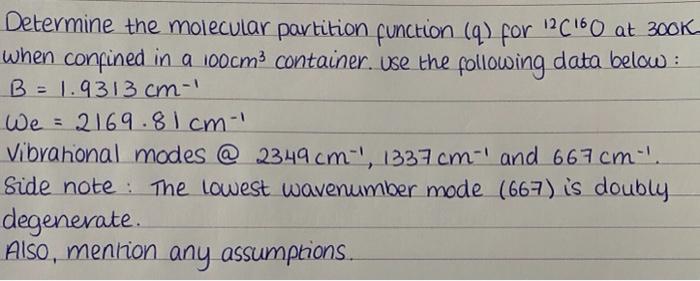 Determine the molecular partition function (q) for ¹²C¹⁶O at 300K
when confined in a 100cm³ container. Use the following data below:
B = 1.9313 cm⁻¹
We = 2169.81 cm⁻¹
Vibrational modes @ 2349cm⁻¹, 1337cm⁻¹ and 667cm⁻¹.
Side note: The lowest wavenumber mode (667) is doubly
degenerate.
Also, mention any assumptions.